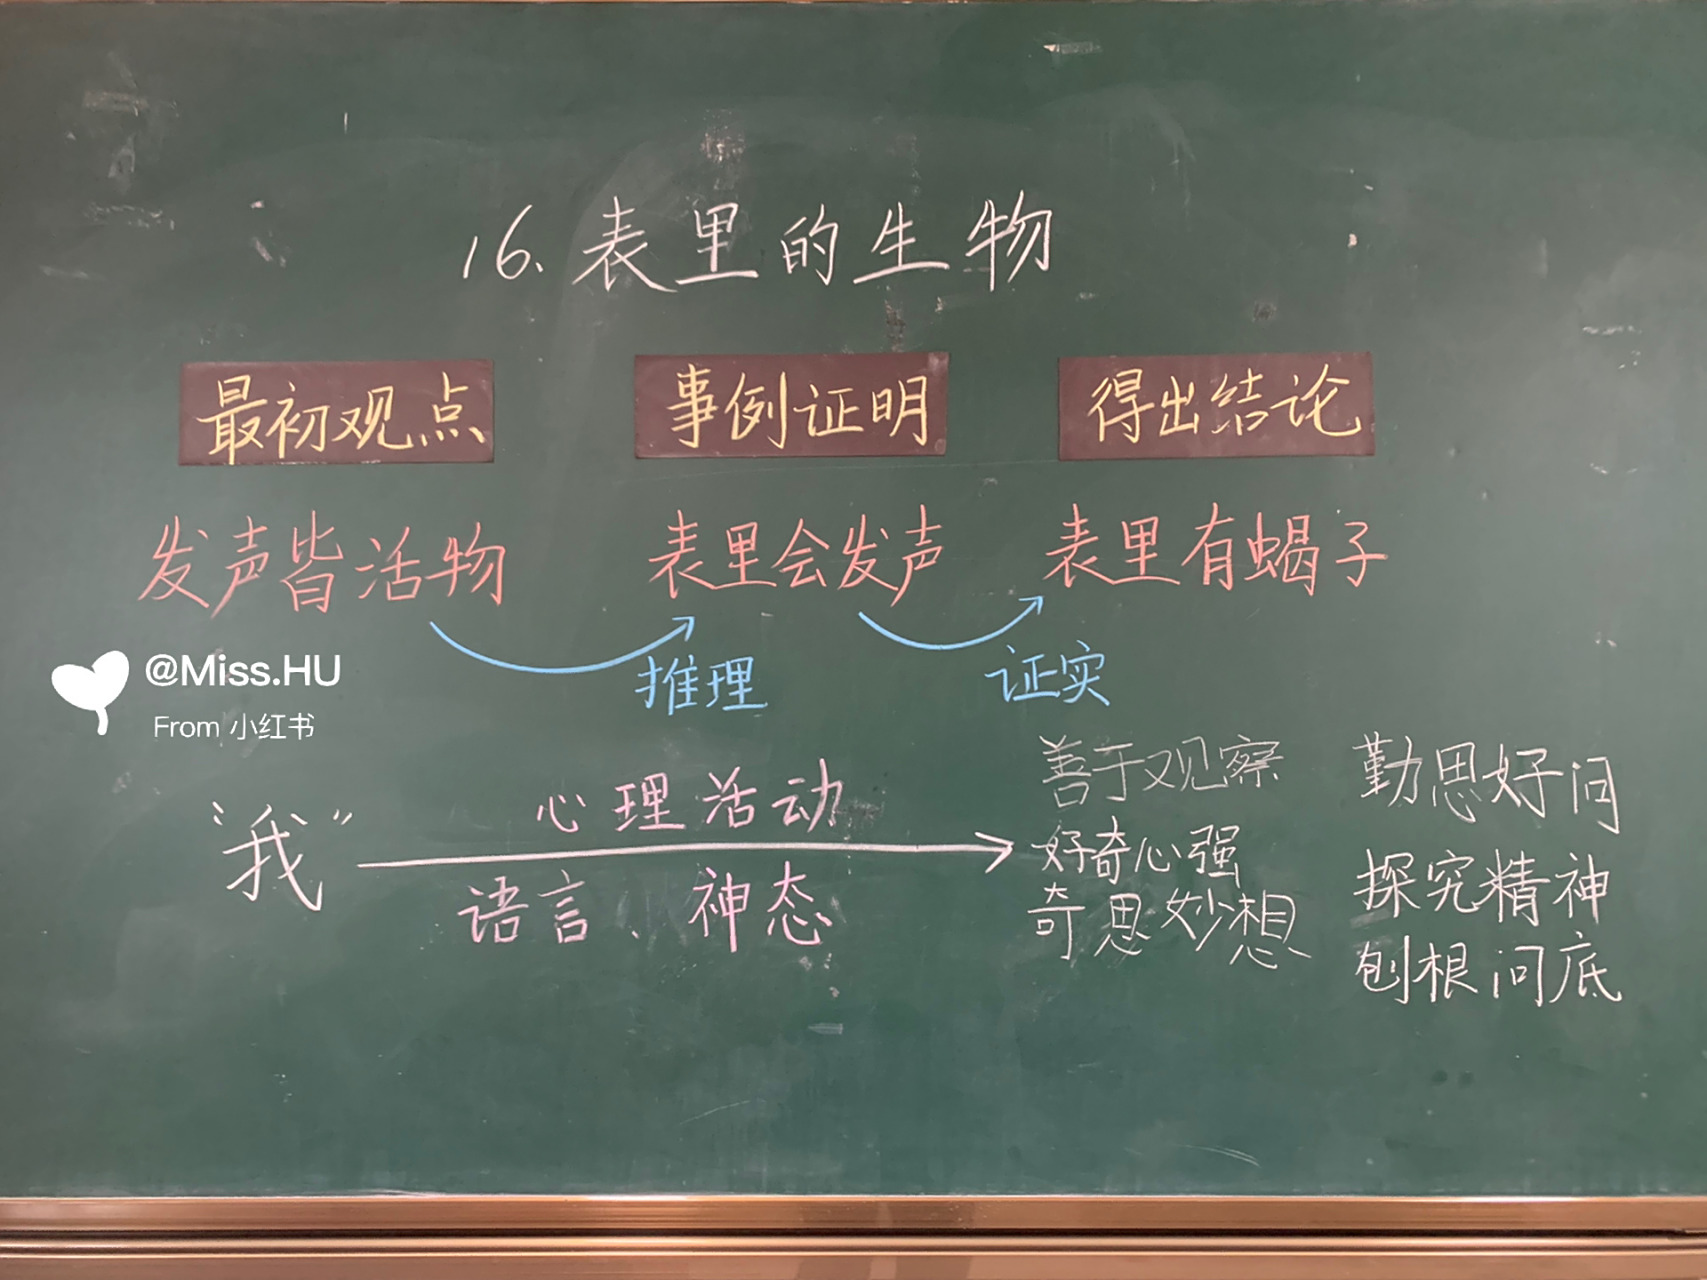 16. 表里的生物
最初观点 事例证明 得出结论
发声皆活物 表里会发声 表里有蝎子
推理 证实
@Miss.HU
From 小红书
“我” 心理活动
语言、神态
善于观察 勤思好问
好奇心强 探究精神
奇思妙想 刨根问底